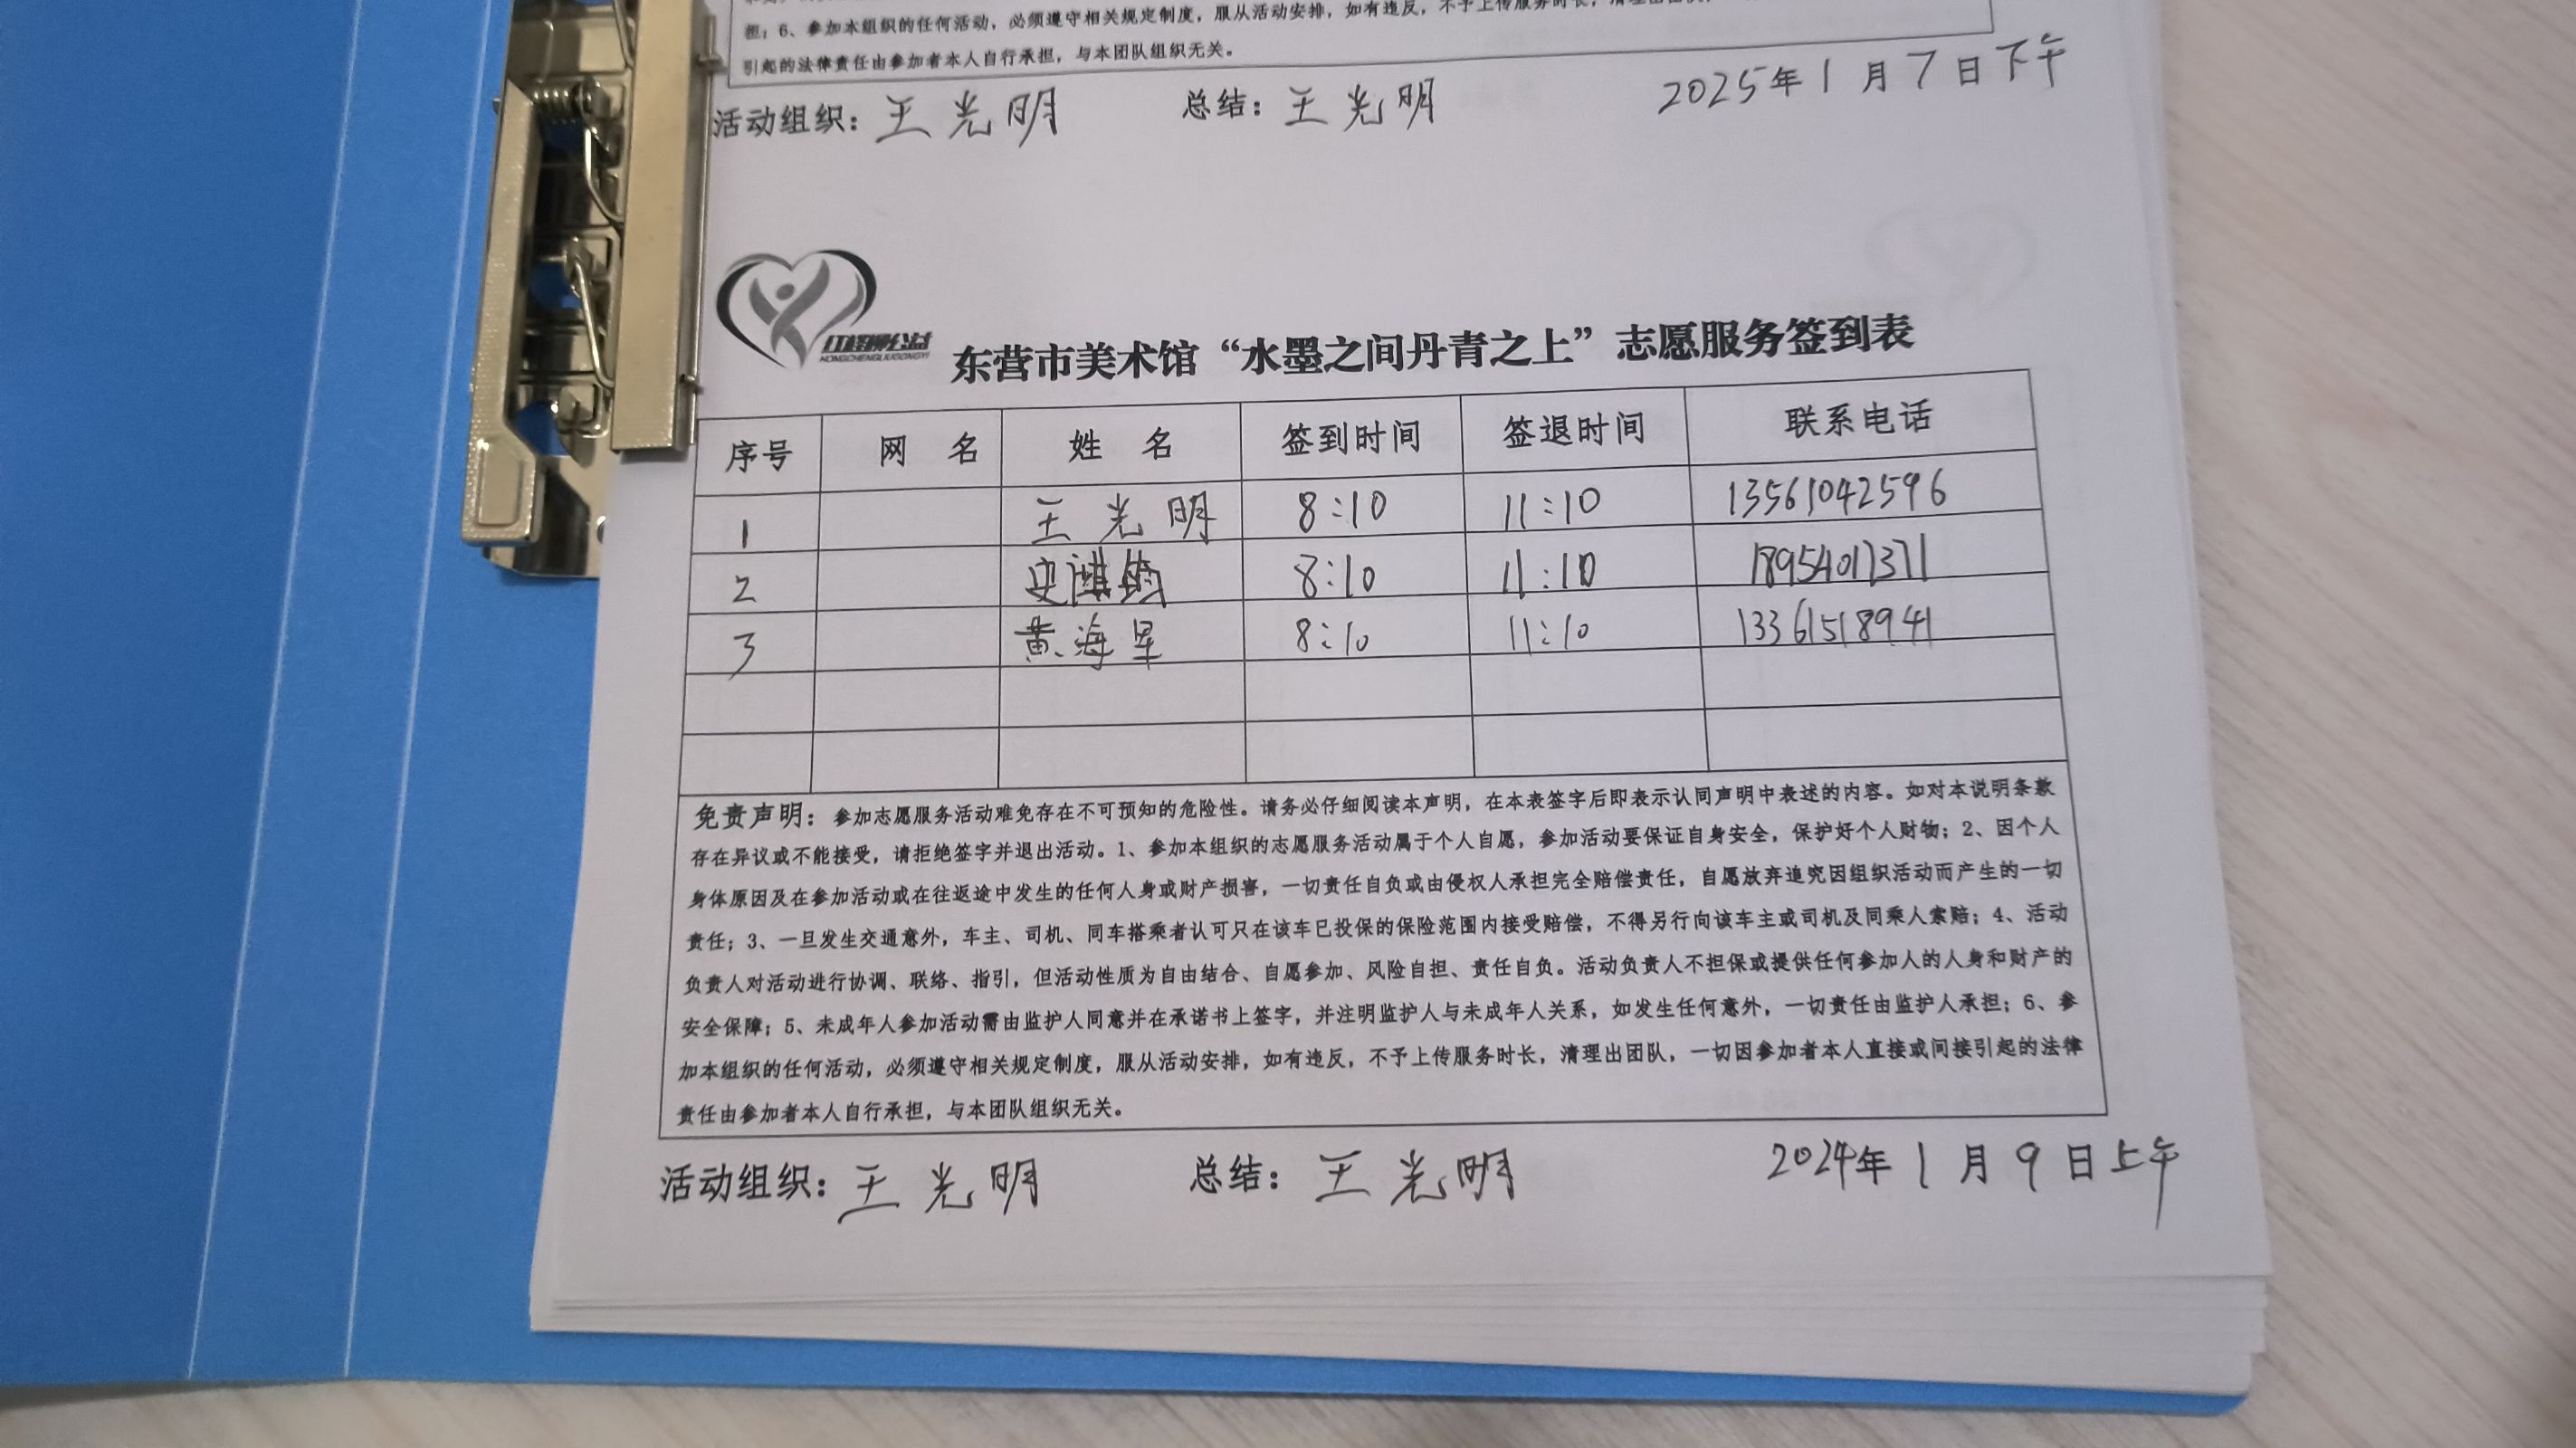 担；6、参加本组织的任何活动，必须遵守相关规定制度，服从活动安排，如有违反，不予上传服务时长，清理出团队，
引起的法律责任由参加者本人自行承担，与本团队组织无关。
活动组织：王光明 总结：王光明 2025年1月7日下午
红柽柳公益
HONGCHENGLIUGONGYI
东营市美术馆“水墨之间丹青之上”志愿服务签到表
序号 网 名 姓 名 签到时间 签退时间 联系电话
1 王光明 8:10 11:10 13561042596
2 史 8:10 11:10 18954017371
3 黄海星 8:10 11:10 13361518941
免责声明：参加志愿服务活动难免存在不可预知的危险性。请务必仔细阅读本声明，在本表签字后即表示认同声明中表述的内容。如对本说明条款
存在异议或不能接受，请拒绝签字并退出活动。1、参加本组织的志愿服务活动属于个人自愿，参加活动要保证自身安全，保护好个人财物；2、因个人
身体原因及在参加活动或在往返途中发生的任何人身或财产损害，一切责任自负或由侵权人承担完全赔偿责任，自愿放弃追究因组织活动而产生的一切
责任；3、一旦发生交通意外，车主、司机、同车搭乘者认可只在该车已投保的保险范围内接受赔偿，不得另行向该车主或司机及同乘人索赔；4、活动
负责人对活动进行协调、联络、指引，但活动性质为自由结合、自愿参加、风险自担、责任自负。活动负责人不担保或提供任何参加人的人身和财产的
安全保障；5、未成年人参加活动需由监护人同意并在承诺书上签字，并注明监护人与未成年人关系，如发生任何意外，一切责任由监护人承担；6、参
加本组织的任何活动，必须遵守相关规定制度，服从活动安排，如有违反，不予上传服务时长，清理出团队，一切因参加者本人直接或间接引起的法律
责任由参加者本人自行承担，与本团队组织无关。
活动组织：王光明 总结：王光明 2024年1月9日上午